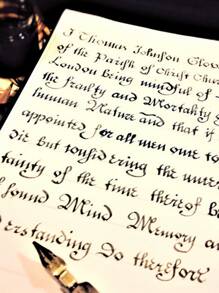 I Thomas Johnson
of the Parish of Christ
London being mindful of
the frailty and Mortality
human Nature and that it
appointed for all men one to
die but considering the
tainty of the time thereof be
sound Mind Memory an
derstanding Do therefore